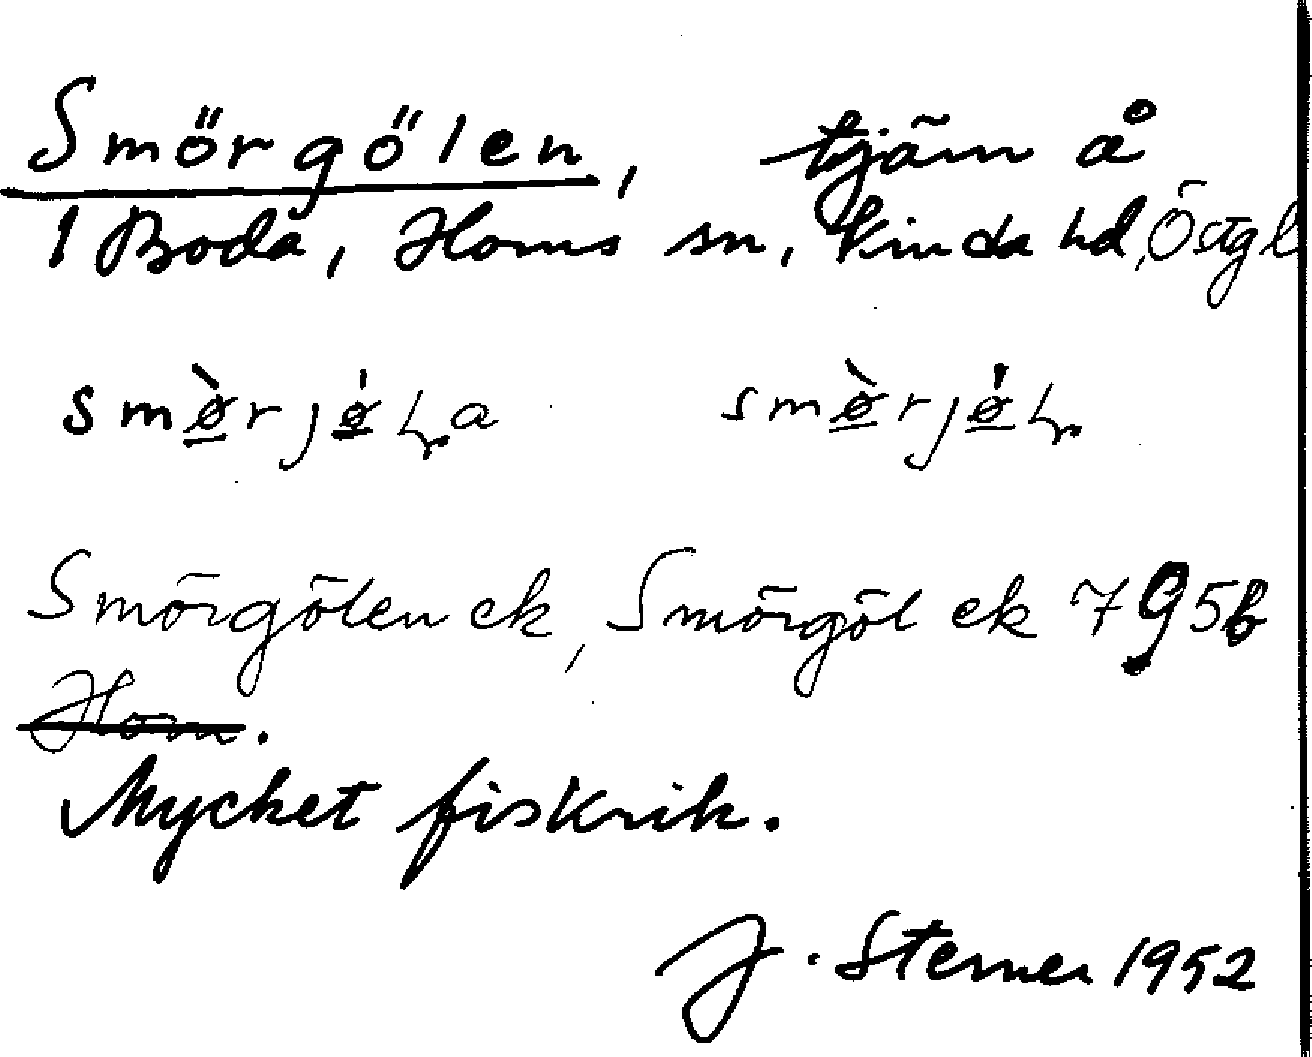 Smörgölen, tjärn å
1 Boda, Horns sn, Kinda hd, Östgl
Smörgölen ek, Smörgöl ek 7 G 5b
Horn.
Mycket fiskrik.
J. Sterner 1952